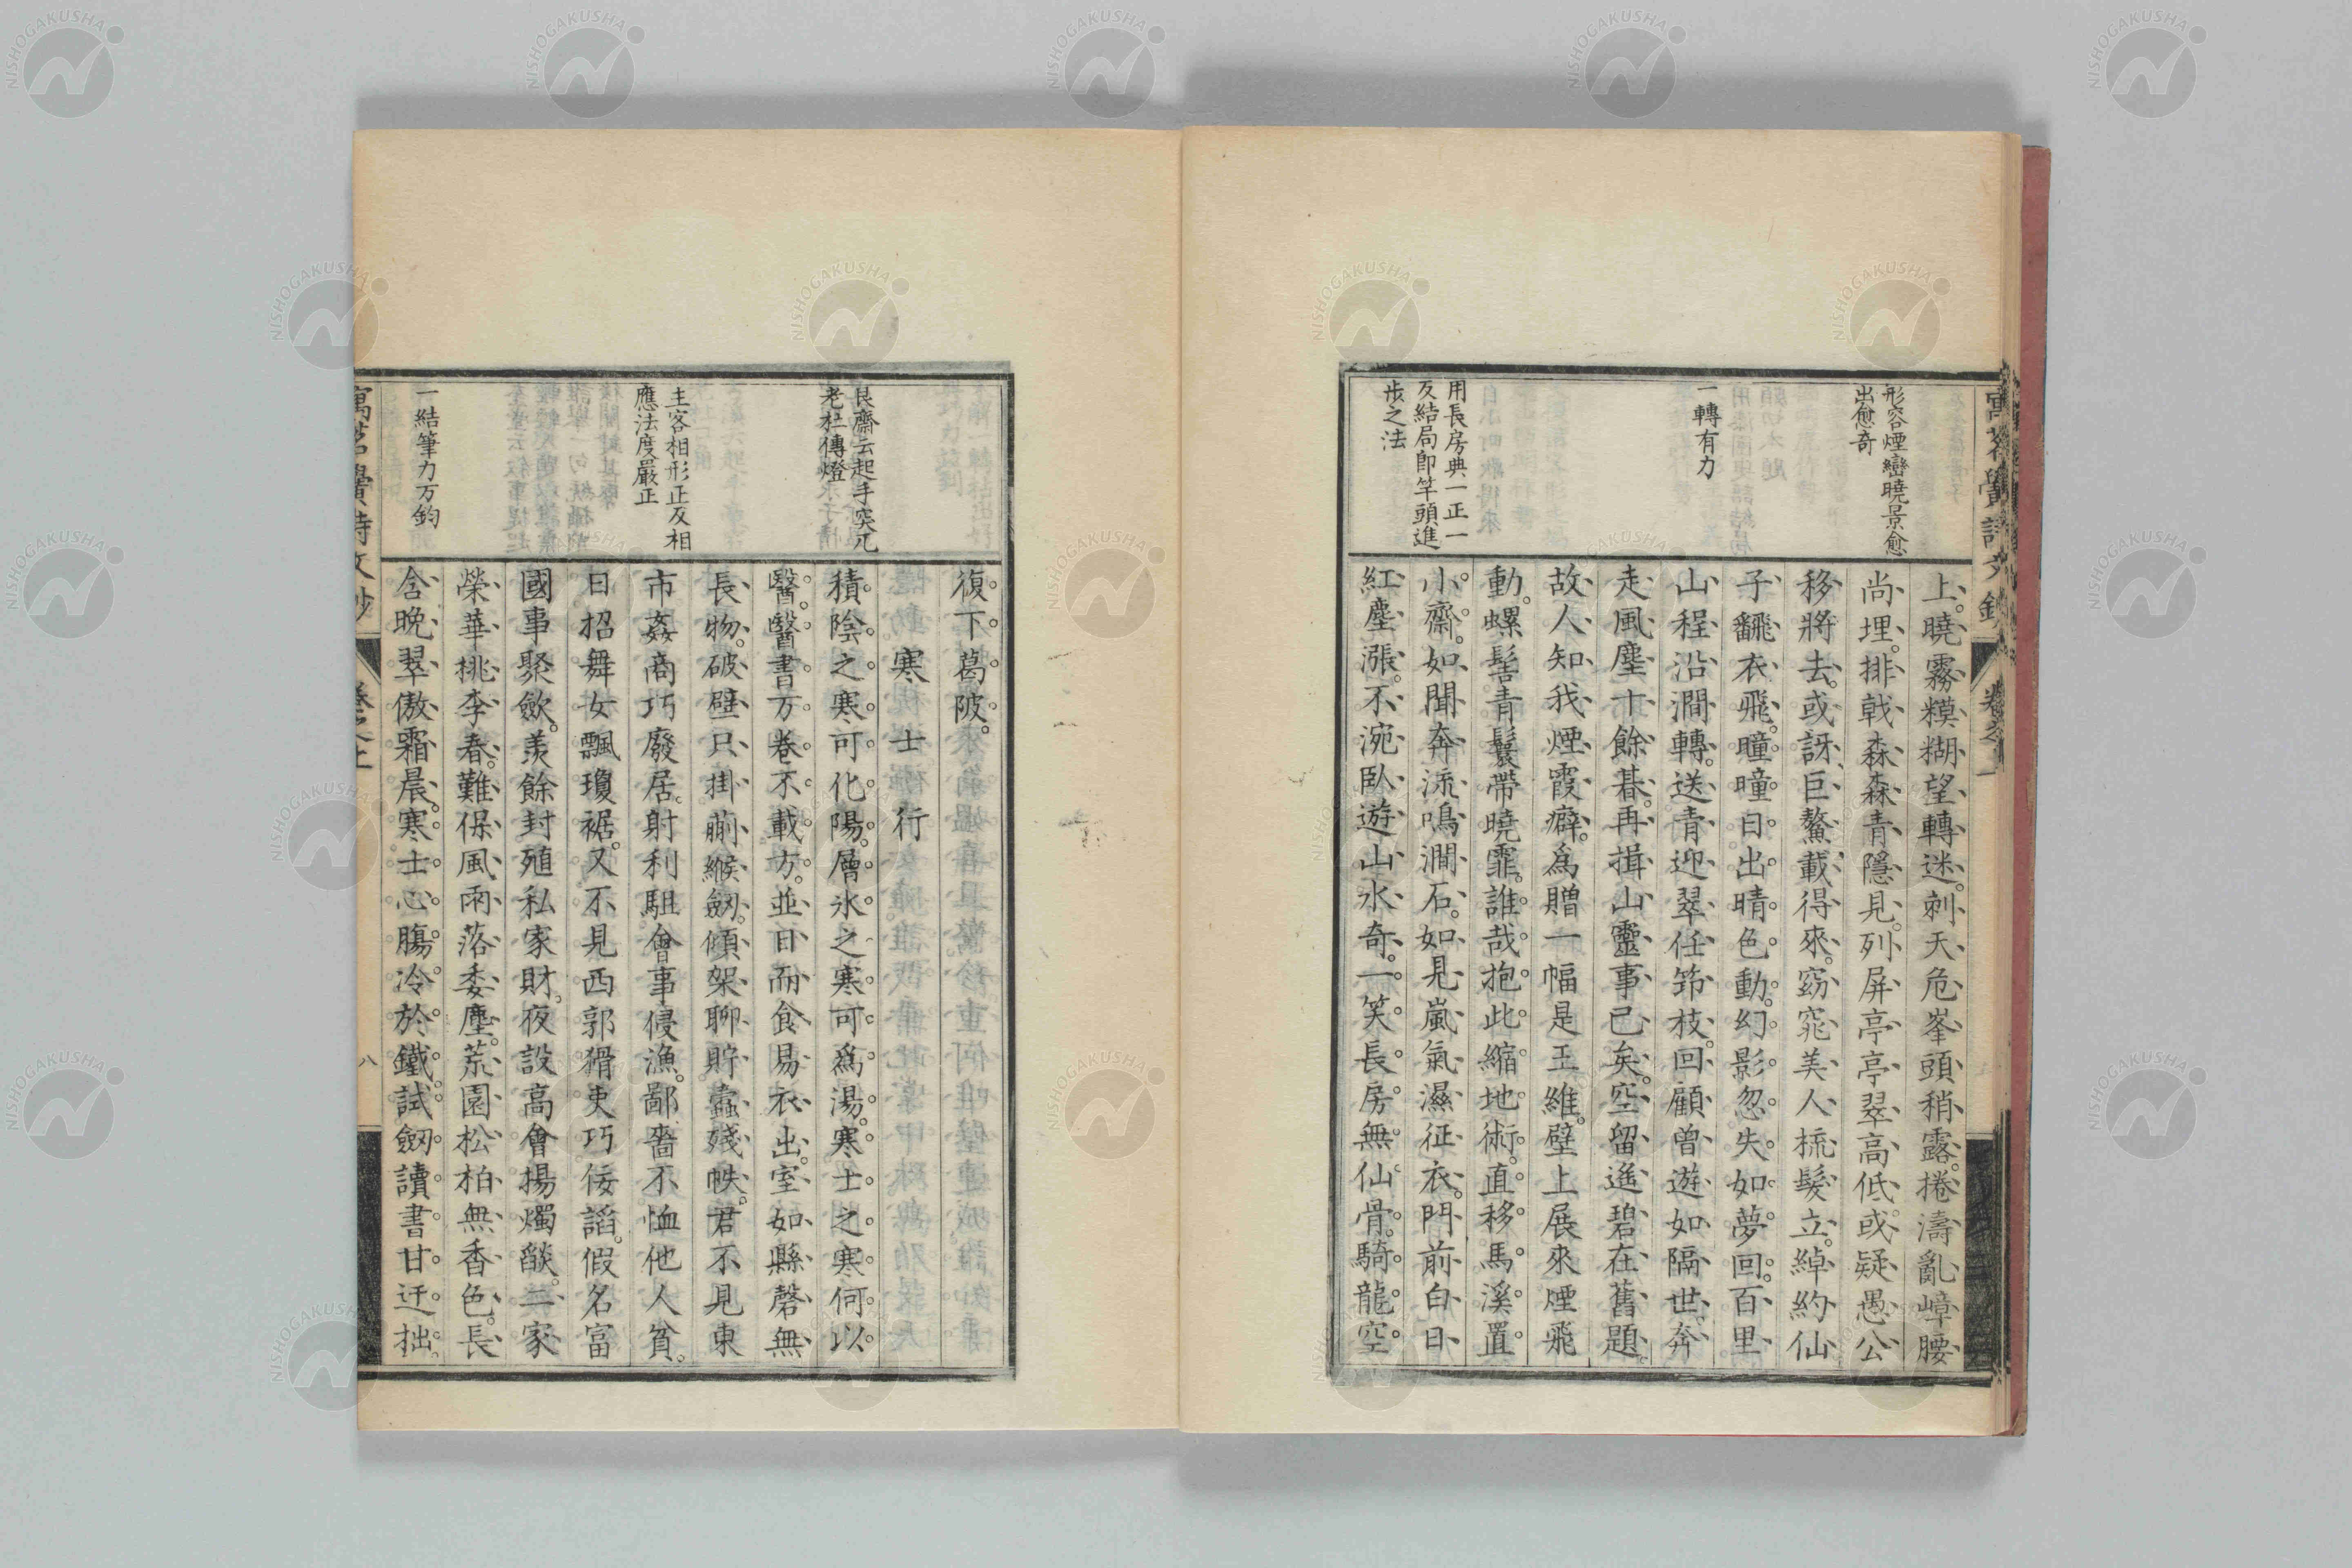 形容煙巒曉景愈
出愈奇
一轉有力
用長房典一正一
反結局即竿頭進
步之法
上曉霧糢糊望轉迷刺天危峯頭稍露捲濤亂嶂腰
尚埋排戟森森青隱見列屏亭亭翠高低或疑愚公
移將去或訝巨鰲載得來窈窕美人梳髮立綽約仙
子翻衣飛曈曈日出晴色動幻影忽失如夢回百里
山程沿澗轉送青迎翠任笻枝回顧曾遊如隔世奔
走風塵十餘碁再揖山靈事已矣空留遙碧在舊題
故人知我煙霞癖為贈一幅是王維壁上展來煙飛
動螺髻青鬟帶曉霏誰哉抱此縮地術直移馬溪置
小齋如聞奔流鳴澗石如見嵐氣濕征衣門前白日
紅塵漲不涴臥遊山水奇一笑長房無仙骨騎龍空
艮齋云起手突兀
老杜傳燈
主客相形正反相
應法度嚴正
一結筆力万鈞
復下葛陂
寒士行
積陰之寒可化陽層氷之寒可為湯寒士之寒何以
醫醫書万卷不載方並日而食易衣出室如縣磬無
長物破壁只掛蒯緱劔傾架聊貯蠹殘帙君不見東
市姦商巧廢居射利駔會事侵漁鄙嗇不恤他人貧
日招舞女飄瓊裾又不見西郭猾吏巧佞諂假名富
國事聚斂羨餘封殖私家財夜設高會揚燭燄二家
榮華桃李春難保風雨落委塵荒園松柏無香色長
含晩翠傲霜晨寒士心膓冷於鐵試劔讀書甘迂拙
八